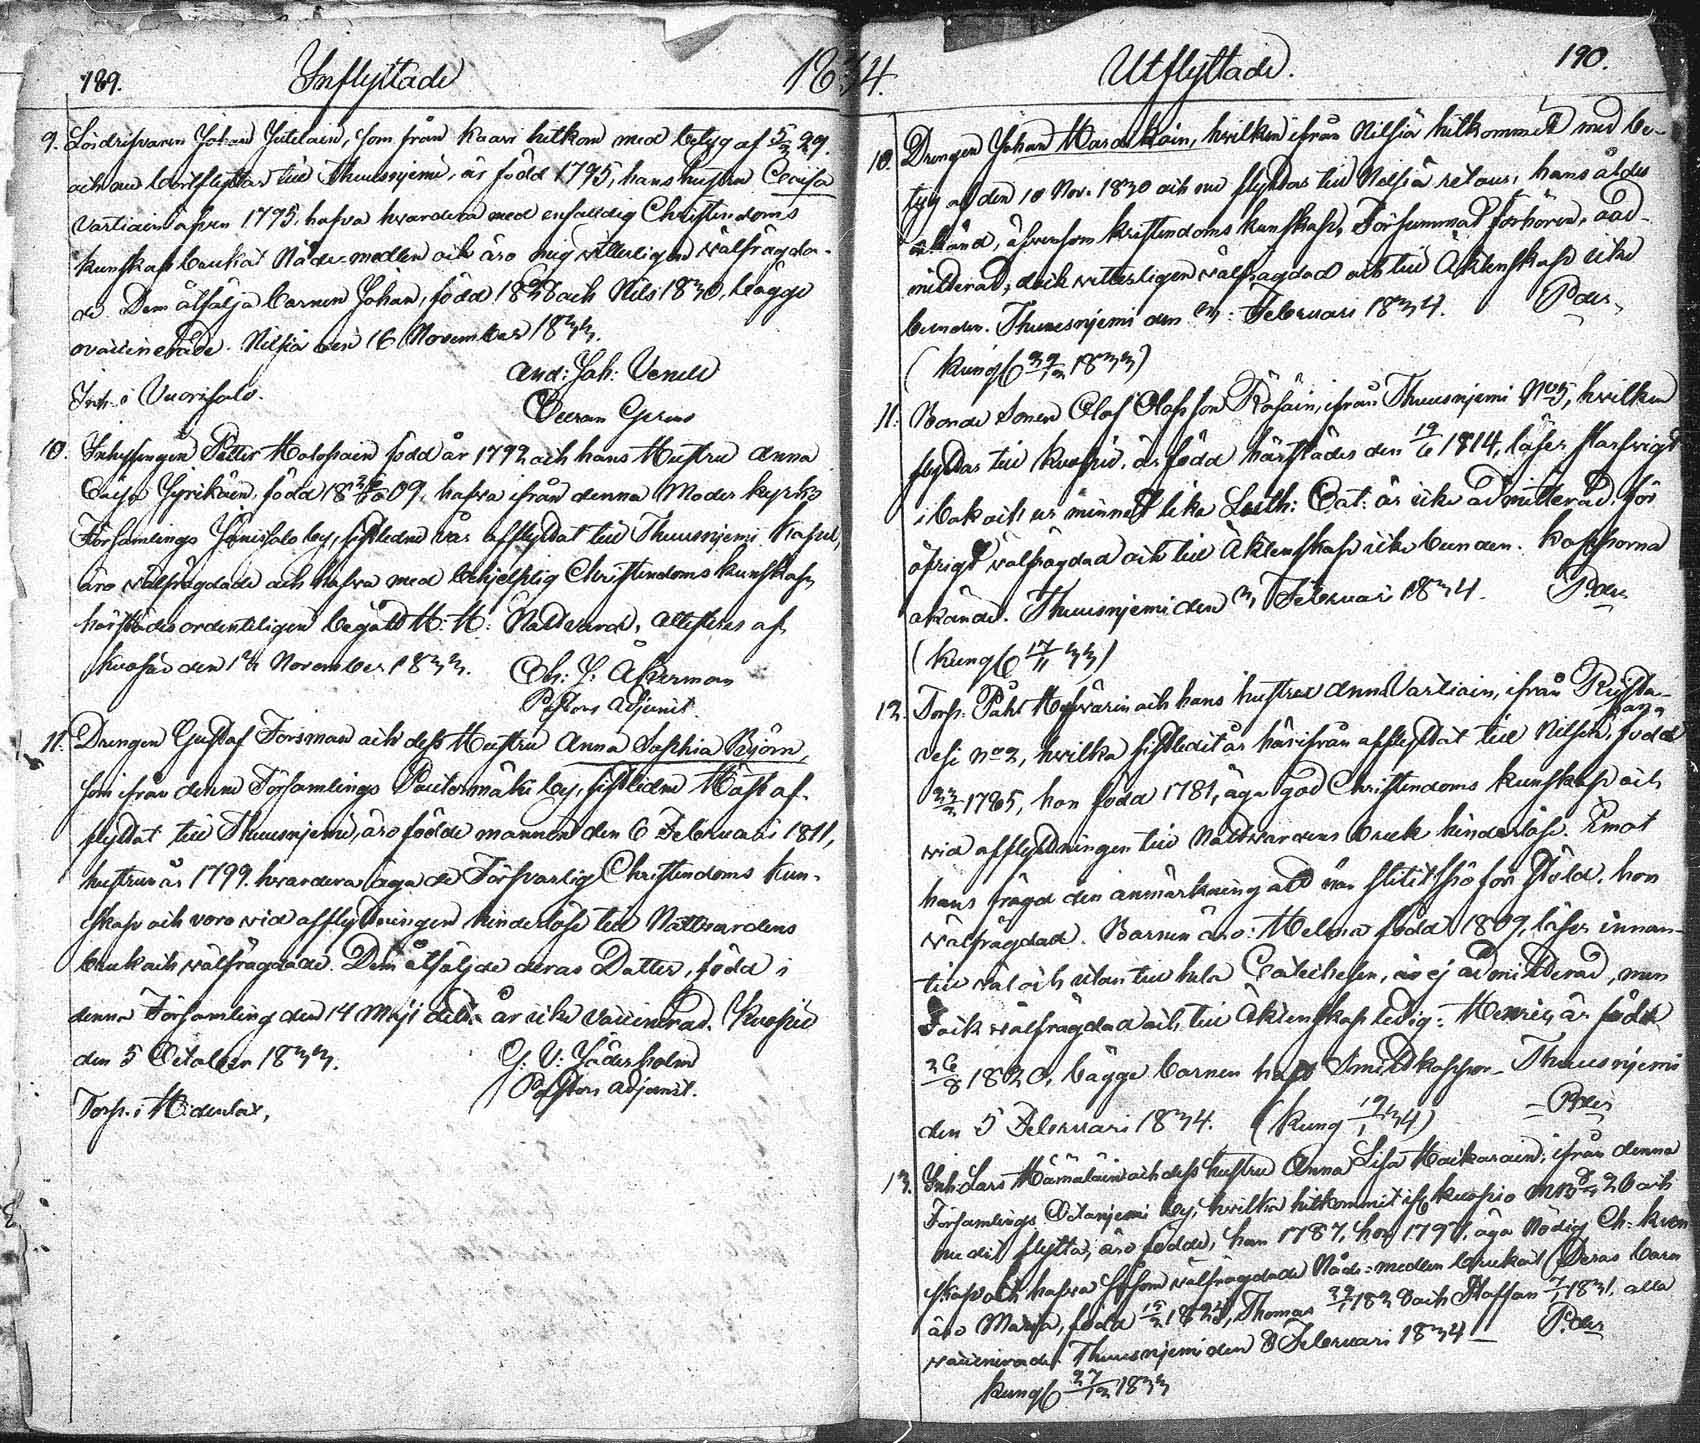 189. Inflyttade 1834.
9. Lösdrifvaren Johan Jutilain, som från Kaavi hitkom med betyg af 5/3 29.
och nu bortflyttar till Thuusnjemi, är född 1795, hans hustru Cecilia
Vartiain äfven 1795, hafva hvardera med enfalldig Christendoms
kunskap brukat Nåde-medlen och äro mig vitterligen välfrägda-
de. Dem åtfölja barnen Johan, född 1828 och Nils 1830, bägge
vaccinerade. Nilsiä den 16 November 1833.
And: Joh: Venell
Inh. i Vuorisalo.
10. Inhysingen Petter Malossain född år 1792 och hans Hustru Anna
Caisa Jyrikäin, född 1809, hafva ifrån denna Moder kyrko
Församlings Jänissalo by, sistledne vår afflyttat till Thuusnjemi Kapell,
äro välfrägdade och hafva med behjelplig Christendoms kunskap,
härstädes ordentligen begått H: H: Nattvard, attesteras af,
Kuopio den 13 November 1833. Joh: J: Åkerman
Pastors Adjunct.
11. Drengen Gustaf Forsman och dess Hustru Anna Sophia Björn,
som ifrån denne Församlings Puutosmäki by, sistledne Höst af-
flyttat till Thuusnjemi, äro födde mannen den 6 Februari 1811,
hustrun år 1799. hvardera äga de Försvarlig Christendoms kun-
skap och voro vid afflyttningen hinderlöse till Nattvardens
bruk och välfrägdade. Dem åtföljde deras Dotter, född i
denna Församling den 14 Maji detta år icke vaccinerad. Kuopio
den 5 October 1833. G. V: Söderholm
Pastors adjunct.
Torp. i Hidenlax,
Utflyttade. 190.
10. Drengen Johan Karakain, hvilken ifrån Nilsiä hitkommit med be-
tyg af den 10 Nov. 1830 och nu flyttar till Nilsiä retour, hans ålder
okänd, äfvensom kristendoms kunskap, Försummat förhören, ad-
mitterad, dock vitterligen välfrägdad och till Äktenskap icke
bunden. Thuusnjemi den 3: Februari 1834. Pder
(kungs 29/12 1833)
11. Bonde Sonen Olof Olofsson Räsäin, ifrån Thuusnjemi No 5, hvilken
flyttar till Kuopio, är född härstädes den 19/6 1814, läser försvarligt
i bok och ur minnet lika Luth: Cat: är icke admitterad, för
öfrigt välfrägdad och till Äktenskap icke bunden. Kopporna
okände. Thuusnjemi den 3 Februari 1834. Pder
(kungs 17/11 33)
12. Torp. Påhl Hyvärin och hans hustru Anna Vartiain, ifrån Riista-
vesi No 2, hvilka sistledit år härifrån afflyttat till Nilsiä, han född
23/2 1785, hon född 1781, äga god Christendoms kunskap och
vid afflyttningen till Nattvardens bruk hinderlöse. Emot
hans frägd den anmärkning att han slitit spö för stöld. hon
välfrägdad. Barnen äro: Helena född 1809, läser innan-
till väl och utan till hela Catechesen, är ej admitterad, men
dock välfrägdad och till Äktenskap ledig; Henric, är född
26/8 1820, bägge barnen haft Smittkoppor. Thuusnjemi
den 5 Februari 1834. (kung 19/1 34) Pder
13. Inh: Lars Hämäläin och dess hustru Anna Lisa Kaikarain, ifrån denna
Församlings by, hvilka hitkommit ifr. Kuopio med och
nu dit flytta, äro födde, han 1787, hon 1797, äga Nödig Ch: kun
skap och hafva såsom välfrägdade Nåde-medlen brukat. Deras barn
äro Maria, född 15/2 1825, Thomas 29/1 1828 och Staffan 7/1 1831. alla
vaccinerade. Thuusnjemi den 8 Februari 1834 Pder
kungs 27/12 1833